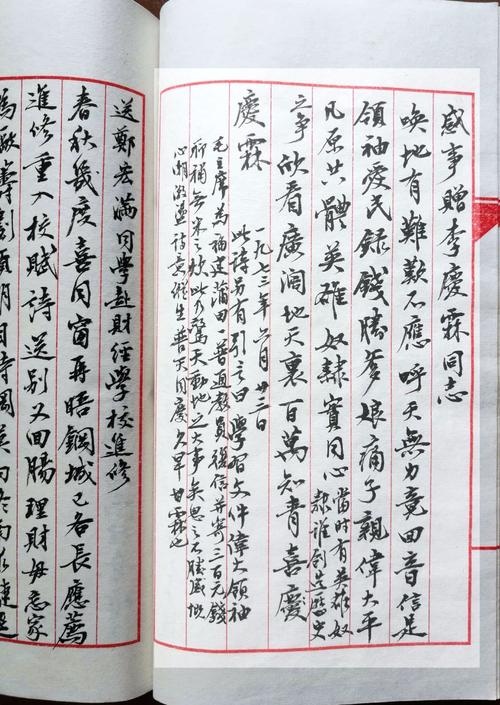 感事贈李慶霖同志
喚地有難歎不應呼天無力竟回音信是
領袖愛民録錢勝爹娘痛子親偉大平
凡原共體英雄奴隸實同心
當時有英雄奴
隸誰創造歷史
之爭欣看廣闊地天裏百萬知青喜慶
慶霖
一九七三年六月廿三日
此詩另有引言曰學習文件偉大領袖
毛主席為福建莆田一普通教員復信並寄三百元錢
聊補無米之炊此乃驚天動地之大事矣思之不勝感慨
心潮激盪詩意縱生普天同慶久旱甘霖也
送鄭宏滿同學赴財經學校進修
春秋幾度喜同窗再晤鋼城已各長應薦
進修重入校賦詩送別又回腸理財毋忘家